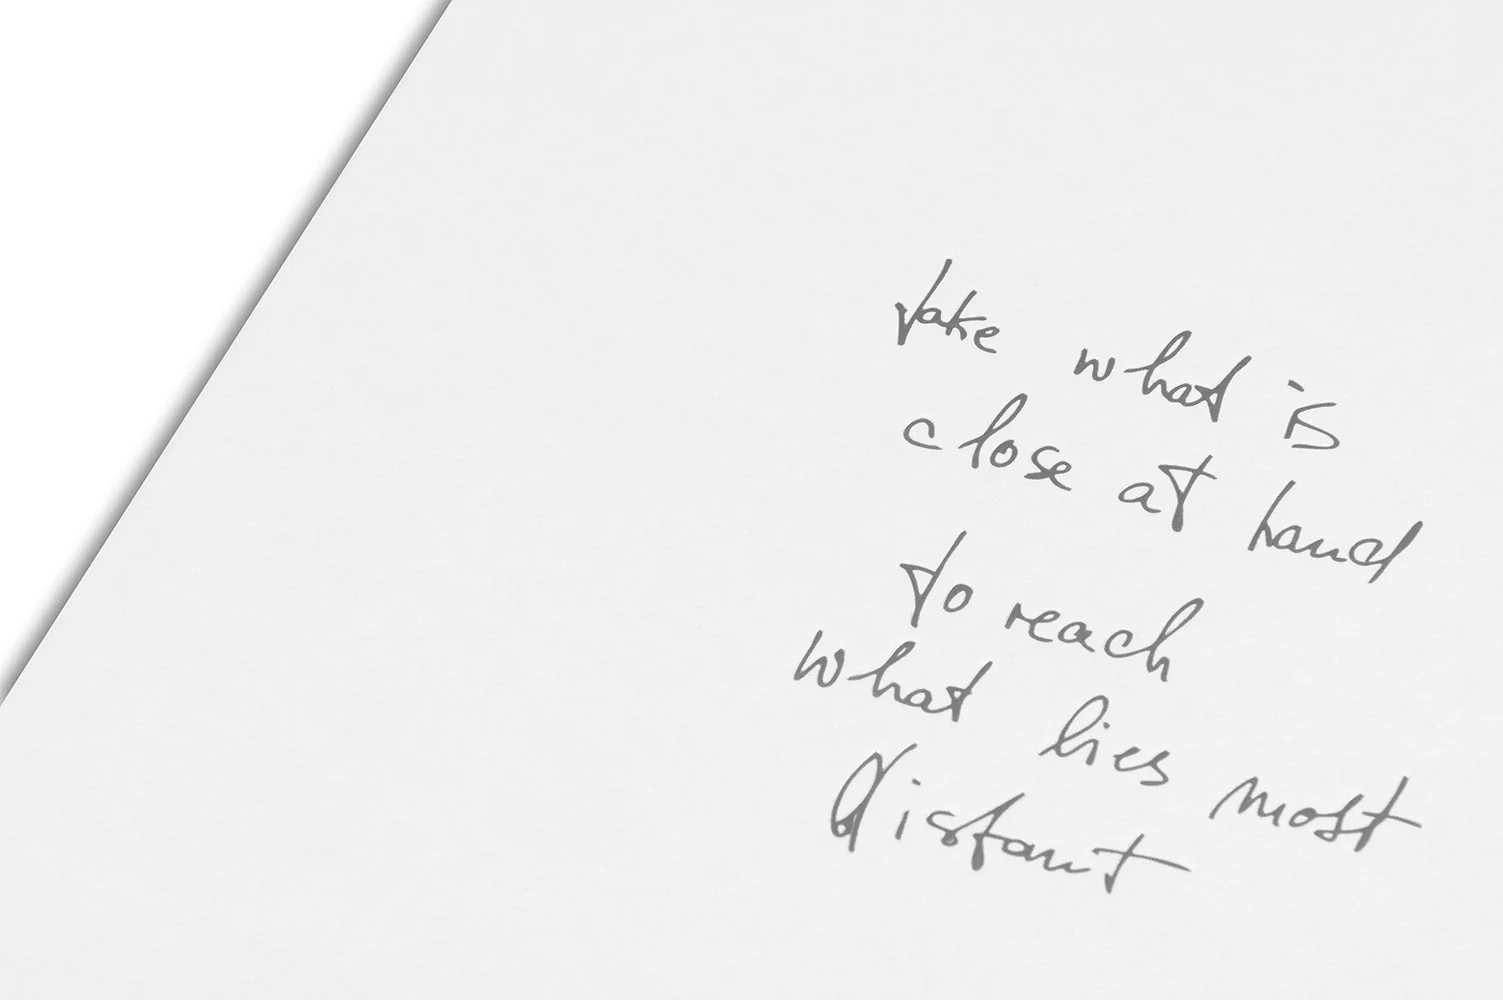 take what is
close at hand
to reach
what lies most
distant